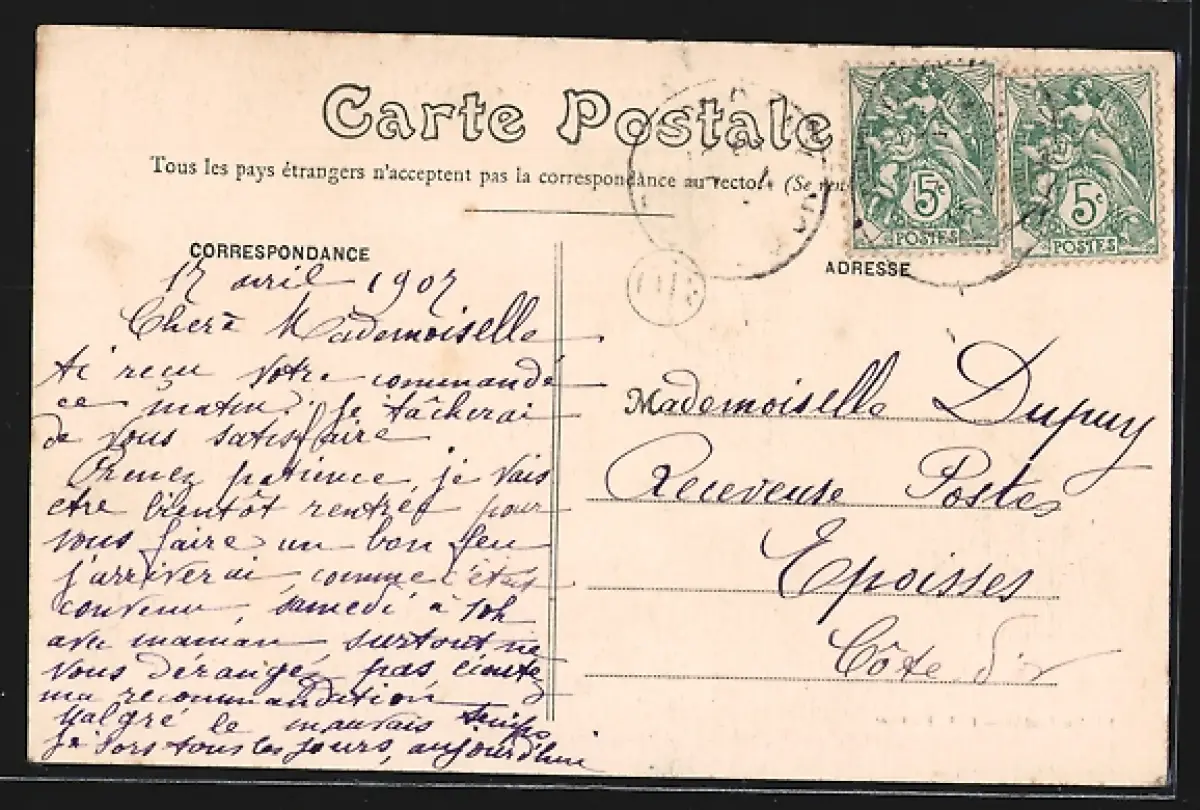 Carte Postale
Tous les pays étrangers n'acceptent pas la correspondance au recto. (Se
5c
POSTES
5c
POSTES
CORRESPONDANCE
17 avril 1907
Cherè Mademoiselle
Ai reçu votre commande
ce matin. Je tâcherai
de vous satisfaire
Prenez patience, je vais
etre bientôt rentrée pour
vous faire un bon feu
J'arriverai, comme c'était
convenu, samedi à 10h
avec maman, surtout ne
vous dérangé pas, écoutez
ma recommandation
Malgré le mauvais temps
je sors tous les jours, aujourd'hui
ADRESSE
Mademoiselle Dupuy
Receveuse Postes
Epoisses
Côte d'or